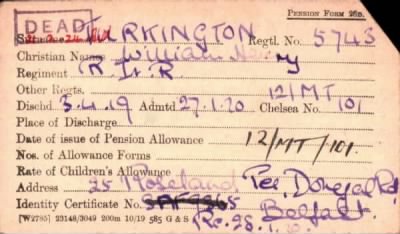 PENSION FORM 280.
DEAD
Surname TURKINGTON Regtl. No. 5743
Christian Names William Henry
Regiment R. Ir. R
Other Regts. 12/MT
Dischd 3.4.19 Admtd. 27.1.20 Chelsea No. 101
Place of Discharge
Date of issue of Pension Allowance 12/MT/101.
Nos. of Allowance Forms
Rate of Children's Allowance
Address 25 Roseland Donegal Rd
Identity Certificate No. Belfast
[W2785] 23148/3049 200m 10/19 585 G & S Re. 28.1.20